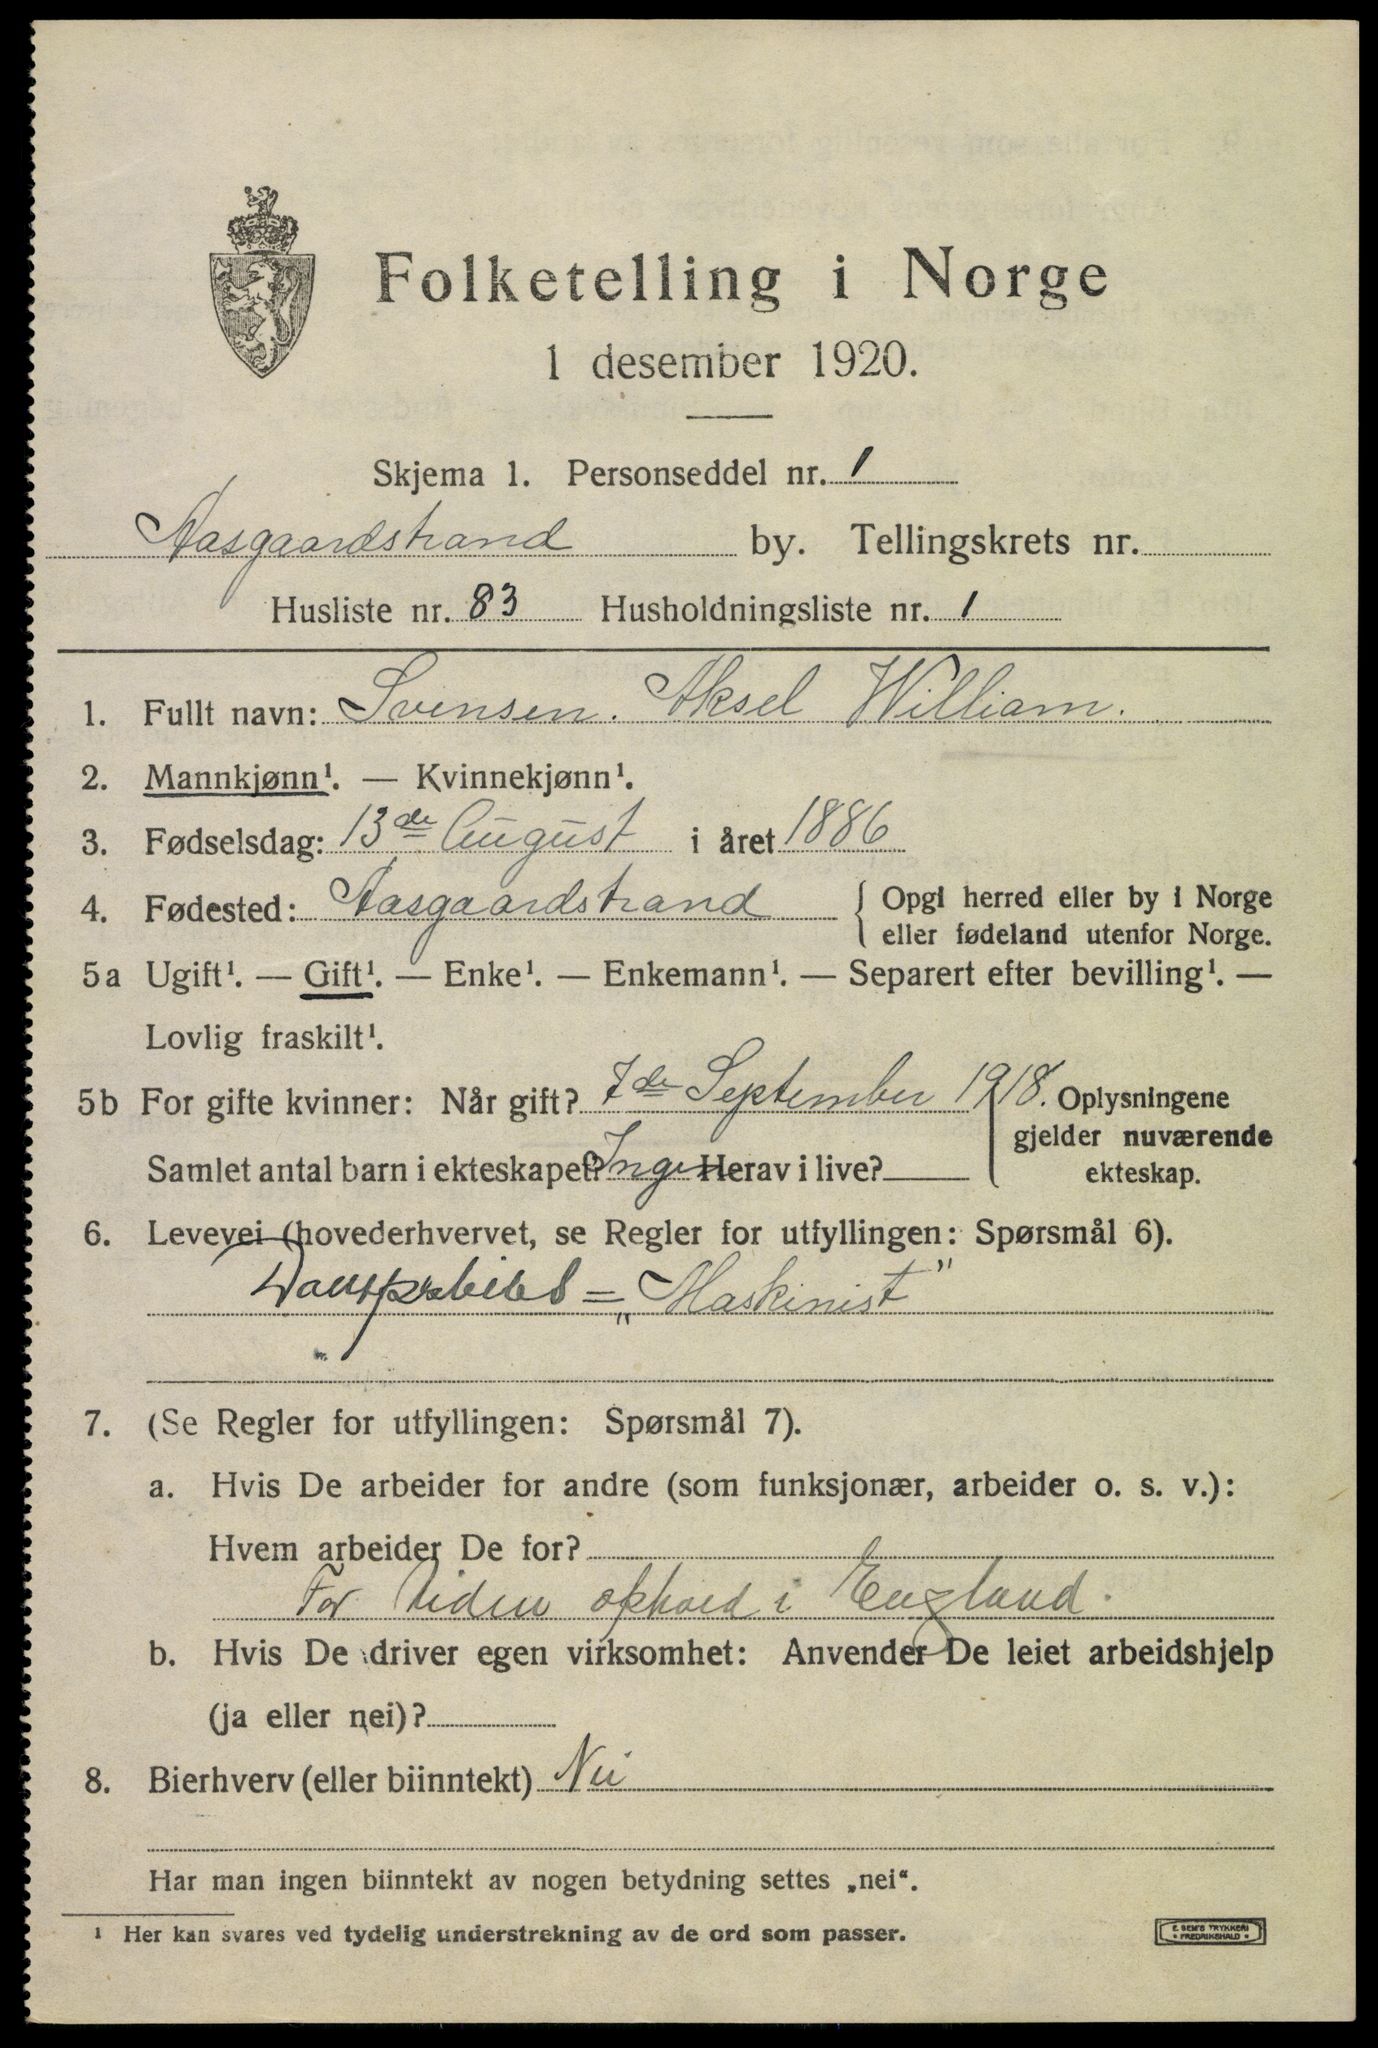 Folketelling i Norge
1 desember 1920.
Skjema 1. Personseddel nr. 1
Aasgaardstrand by. Tellingskrets nr.
Husliste nr. 83 Husholdningsliste nr. 1
1. Fullt navn: Svensen. Aksel William.
2. Mannkjønn¹. — Kvinnekjønn¹.
3. Fødselsdag: 13de August i året 1886
4. Fødested: Aasgaardstrand { Opgi herred eller by i Norge
eller fødeland utenfor Norge.
5a Ugift¹. — Gift¹. — Enke¹. — Enkemann¹. — Separert efter bevilling¹. —
Lovlig fraskilt¹.
5b For gifte kvinner: Når gift? 7de September 1918. Oplysningene
gjelder nuværende
Samlet antal barn i ekteskapet? Ingen Herav i live?
ekteskap.
6. Levevei (hovederhvervet, se Regler for utfyllingen: Spørsmål 6).
= „Maskinist”
7. (Se Regler for utfyllingen: Spørsmål 7).
a. Hvis De arbeider for andre (som funksjonær, arbeider o. s. v.):
Hvem arbeider De for?
For tiden ophold i England.
b. Hvis De driver egen virksomhet: Anvender De leiet arbeidshjelp
(ja eller nei)?
8. Bierhverv (eller biinntekt) Nei
Har man ingen biinntekt av nogen betydning settes „nei“.
¹ Her kan svares ved tydelig understrekning av de ord som passer.
E. SEM'S TRYKKERI
• FREDRIKSHALD •